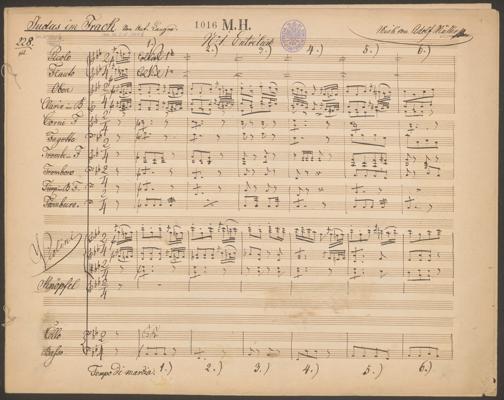 Judas im Frack 1016 M.H. Musik von Adolf Müller
228.
No 1 Entrée
1.) 2.) 3.) 4.) 5.) 6.)
Picolo
Flauto
Oboe
Clarin. in B.
Corni. F.
Fagotto
Trombe. F
Trombone
Timp: B. F.
Tamburo.
Violini
Knöpfel
Cello
Basso
Tempo di marcia. 1.) 2.) 3.) 4.) 5.) 6.)